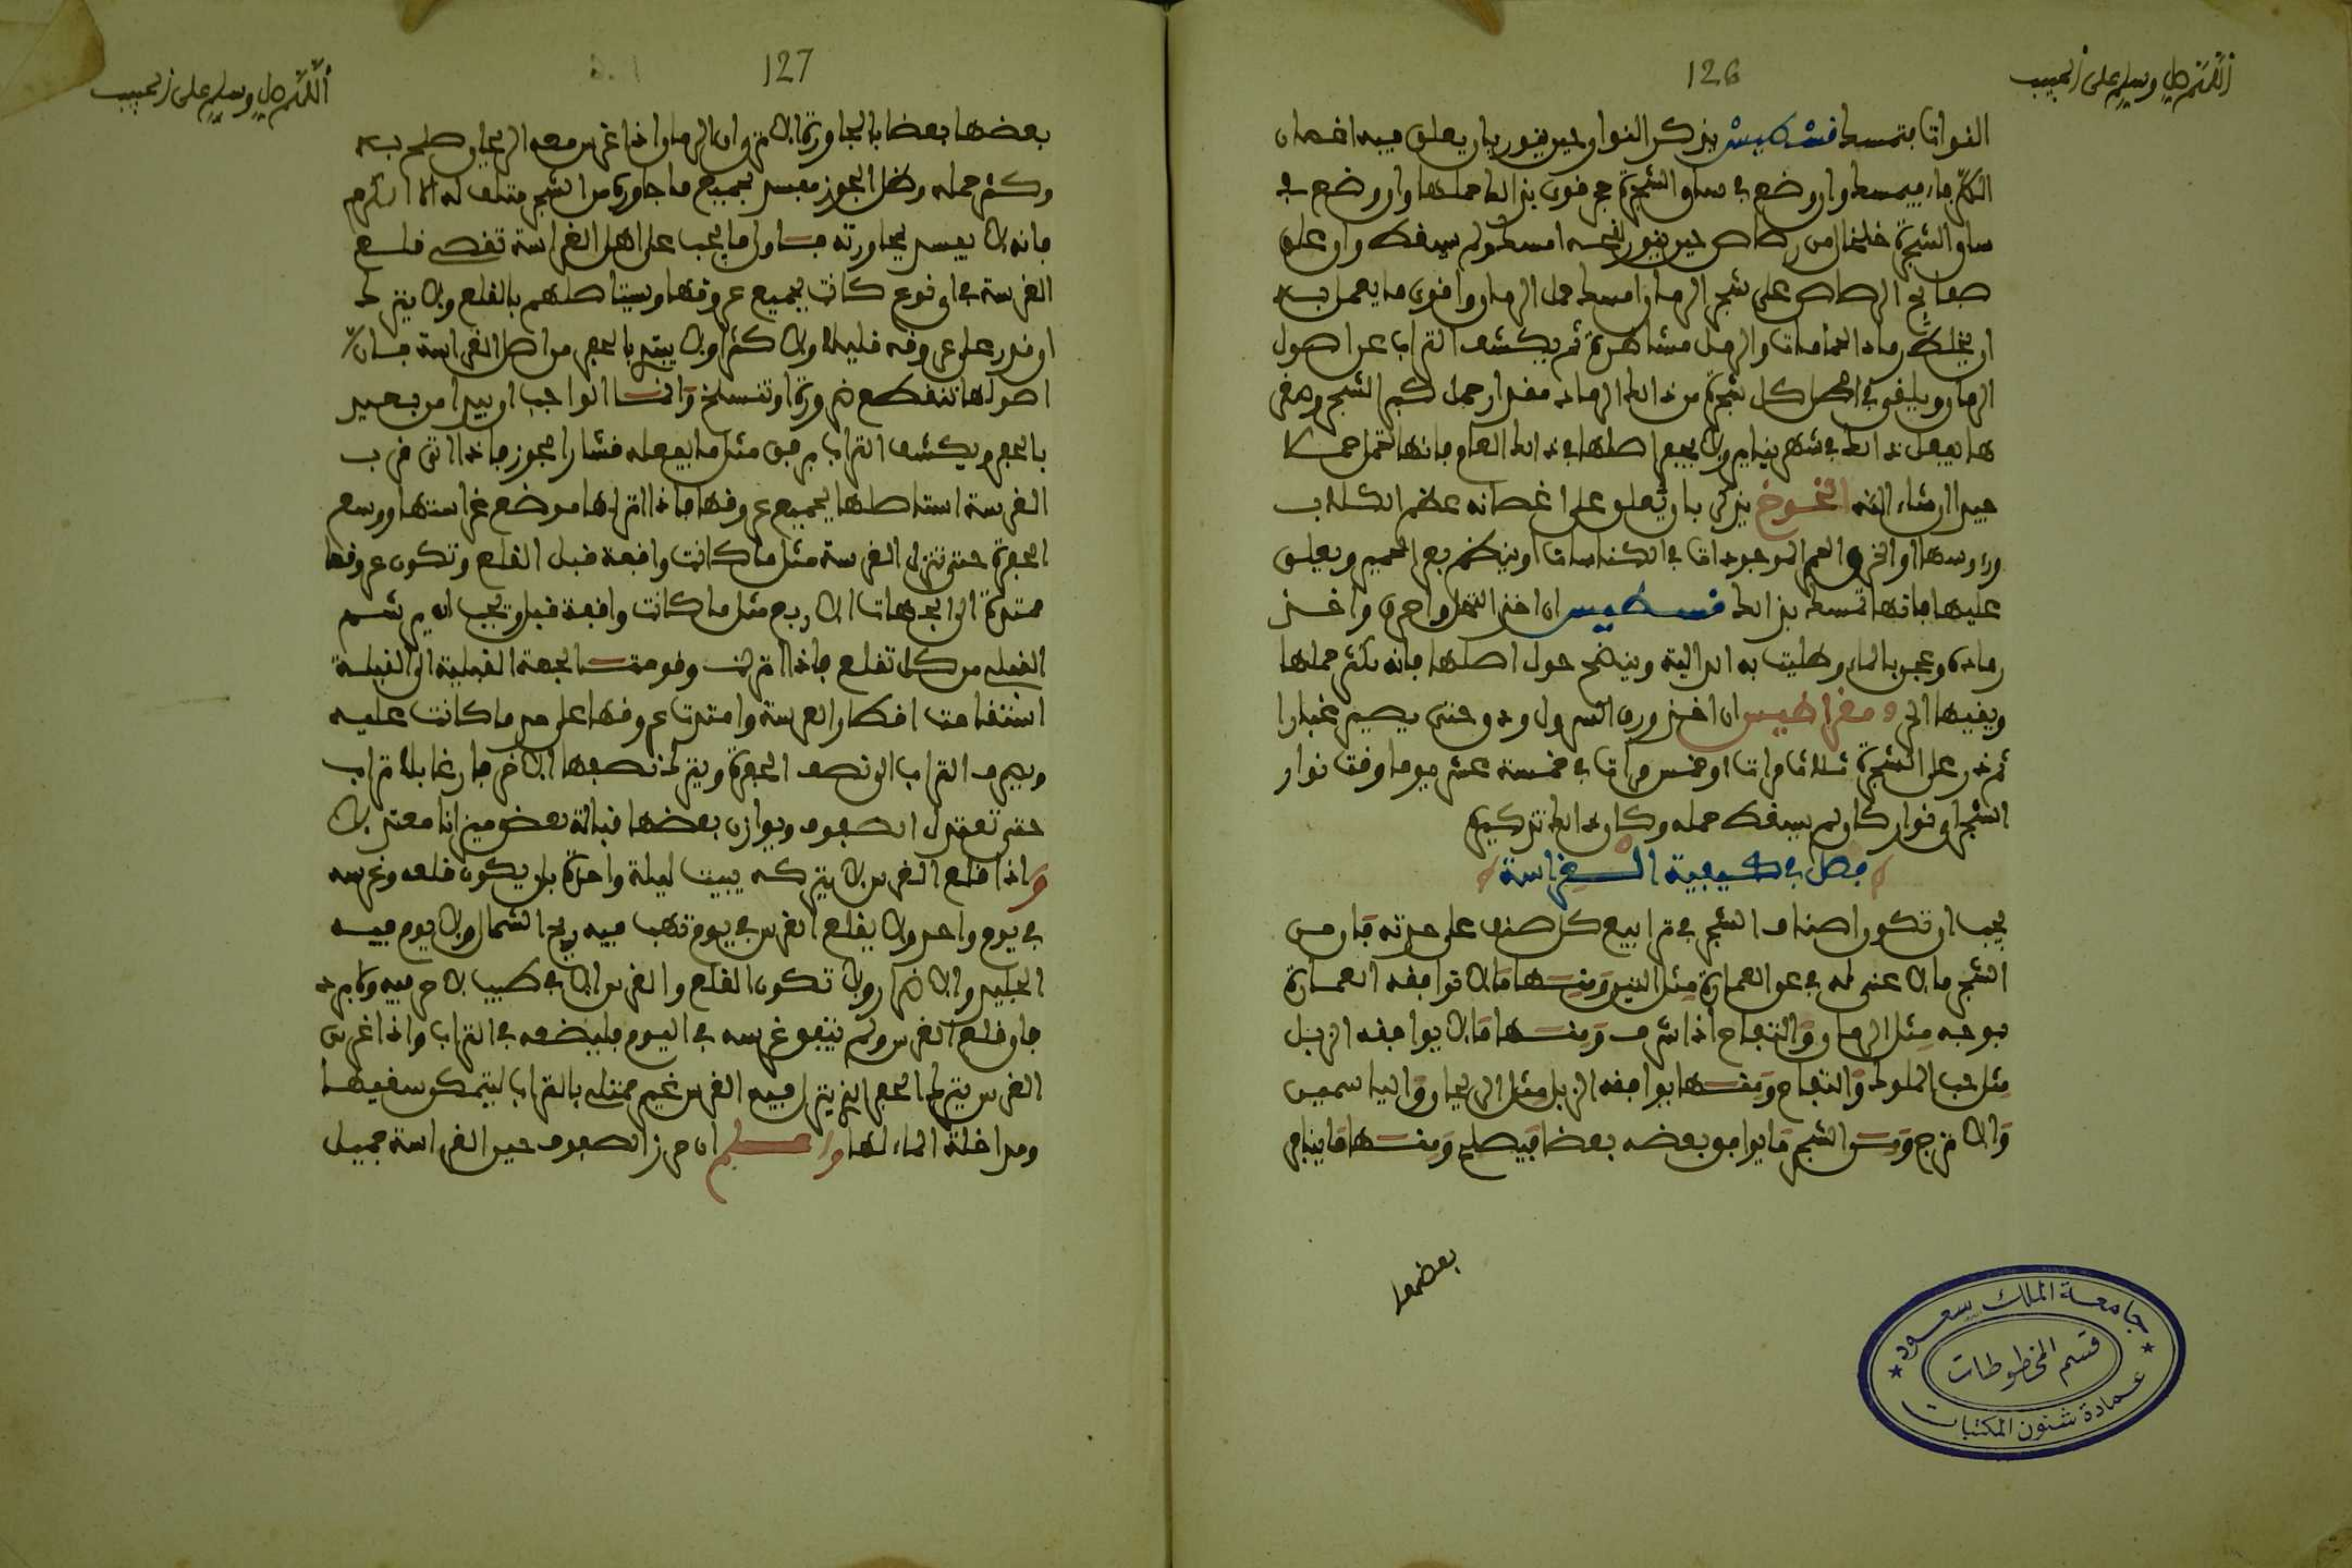 اللهم صل وسلم على الحبيب
126
النواتا بتمسط قسطيس يذكر النوار حين ينور بان يعلق فيه اغصان
فيمسط وان وضع في ساق الشجرة حجر فوق بذالك حملها وان وضع في
ساق الشجرة خلخال من رصاص حين ينور لنفسه امسك ولم يسقط وان علق
صفايح الرصاص على شجر الرمان امسك حمل الرمان واقوى ما يعمل به
ان يخلط رماد الحمامات والرمل مشاطرة ثم يكشف التراب عن اصول
الرمان ويلقى في اصل كل شجرة من ذالك الرماد مقدار حمل كبر الشجر وصغر
ها يفعل ذالك في شهر ينير ولا يحفر اصلها في ذالك العام فانها تحمل حملا
جيدا ان شاء الله الخوخ يذكر بان يعلق على اغصانه عظم الكلاب
وروسها او الخرق الموجودات في الكناسات او ينظم بعر الحمير ويعلق
عليها فانها تمسك بذالك قسطيس ان اخذ النخل واحرق واخذ
رماده وعجن بالماء وطليت به الدالية وينضح حول اصلها فانه يكثر حملها
ويقيها الدود مقراطيس ان اخذ ورق السرول ودق حتى يصير غبارا
ثم ذر على الشجرة ثلاث مرات او خمس مرات في خمسة عشر يوما وقت نوار
الشجر اي نوار كان لم يسقط حمله وكان ذالك تذكيره
فصل في كيفية الغراسة
يجب ان تكون اصناف الشجر في ترابيع كل صنف على حدته فان من
الشجر ما لا غنى له في عن العمارة مثل التين ومنها ما لا توافقه العمارة
بوجه مثل الرمان والتفاح اذا شرف ومنها ما لا يوافقه الزبل
مثل حب الملوك والتفاح ومنها يوافقه الزبل مثل الريحان والياسمين
والاترج ومن الشجر ما يوافق بعضه بعضا فيصلح ومنها ما ينافر
بعضها
جامعة الملك سعود
قسم المخطوطات
عمادة شئون المكتبات
اللهم صل وسلم على الحبيب
127
بعضها بعضا بالمجاورة الا ترى ان الرمان اذا غرس معه الريحان صلح به
وكثر حمله وظل الجوز مفسد لجميع ما جاوره من الشجر متلف له الا الكرم
فانه لا يفسد لمجاورته واما يجب على اهل الغراسة تقصي قلع
الغرسة في اي نوع كانت بجميع عروقها ويستاصلهم بالقلع ولا يترك
او نور على عروقه قليلا ولا كثيرا ولا يبتد بالحفر من اصل الغراسة فان
اصولها تنقطع ضرورة او تنسلخ وانما الواجب ان يبدا من بعيد
بالحفر ويكشف التراب برفق مثل ما يفعله قشار الجوز فاذا اتى قرب
الغرسة استاصلها بجميع عروقها فاذا انزلها موضع غراستها ووسع
الحفرة حتى تنزل الغرسة مثل ما كانت واقفة قبل القلع وتكون عروقها
ممتدة الى الجهات الاربع مثل ما كانت واقفة قبل ويجب ان يرشم
القبلي من كل تقلع فاذا انزلت وقومت الجهة القبلية الى القبلة
استقامت اقطار الغرسة وامتدت عروقها على حد ما كانت عليه
ويصرف التراب الى نصف الحفرة ويترك نصفها الاخر فارغا بلا تراب
حتى تعتدل الصفوف ويوازن بعضها قبالة بعض ميزانا معتدلا
واذا قلع الغرس لا يتركه يبيت ليلة واحدة بل يكون قلعه وغرسه
في يوم واحد ولا يقلع الغرس في يوم تهب فيه ريح الشمال ولا يوم فيه
الجليد والا ولا تكون القلع والغرس الا في طيب لا حر فيه ولا برد
فان قلع الغرس ولم يتفق غرسه في اليوم فليضعه في التراب واذا غرس
الغرس يترك الحفر الذي ينزل فيه الغرس غير ممتلئ بالتراب ليتمكن سقيها
ومداخلة الماء لها واعلم ان حرز الصفوف حين الغراسة جميل